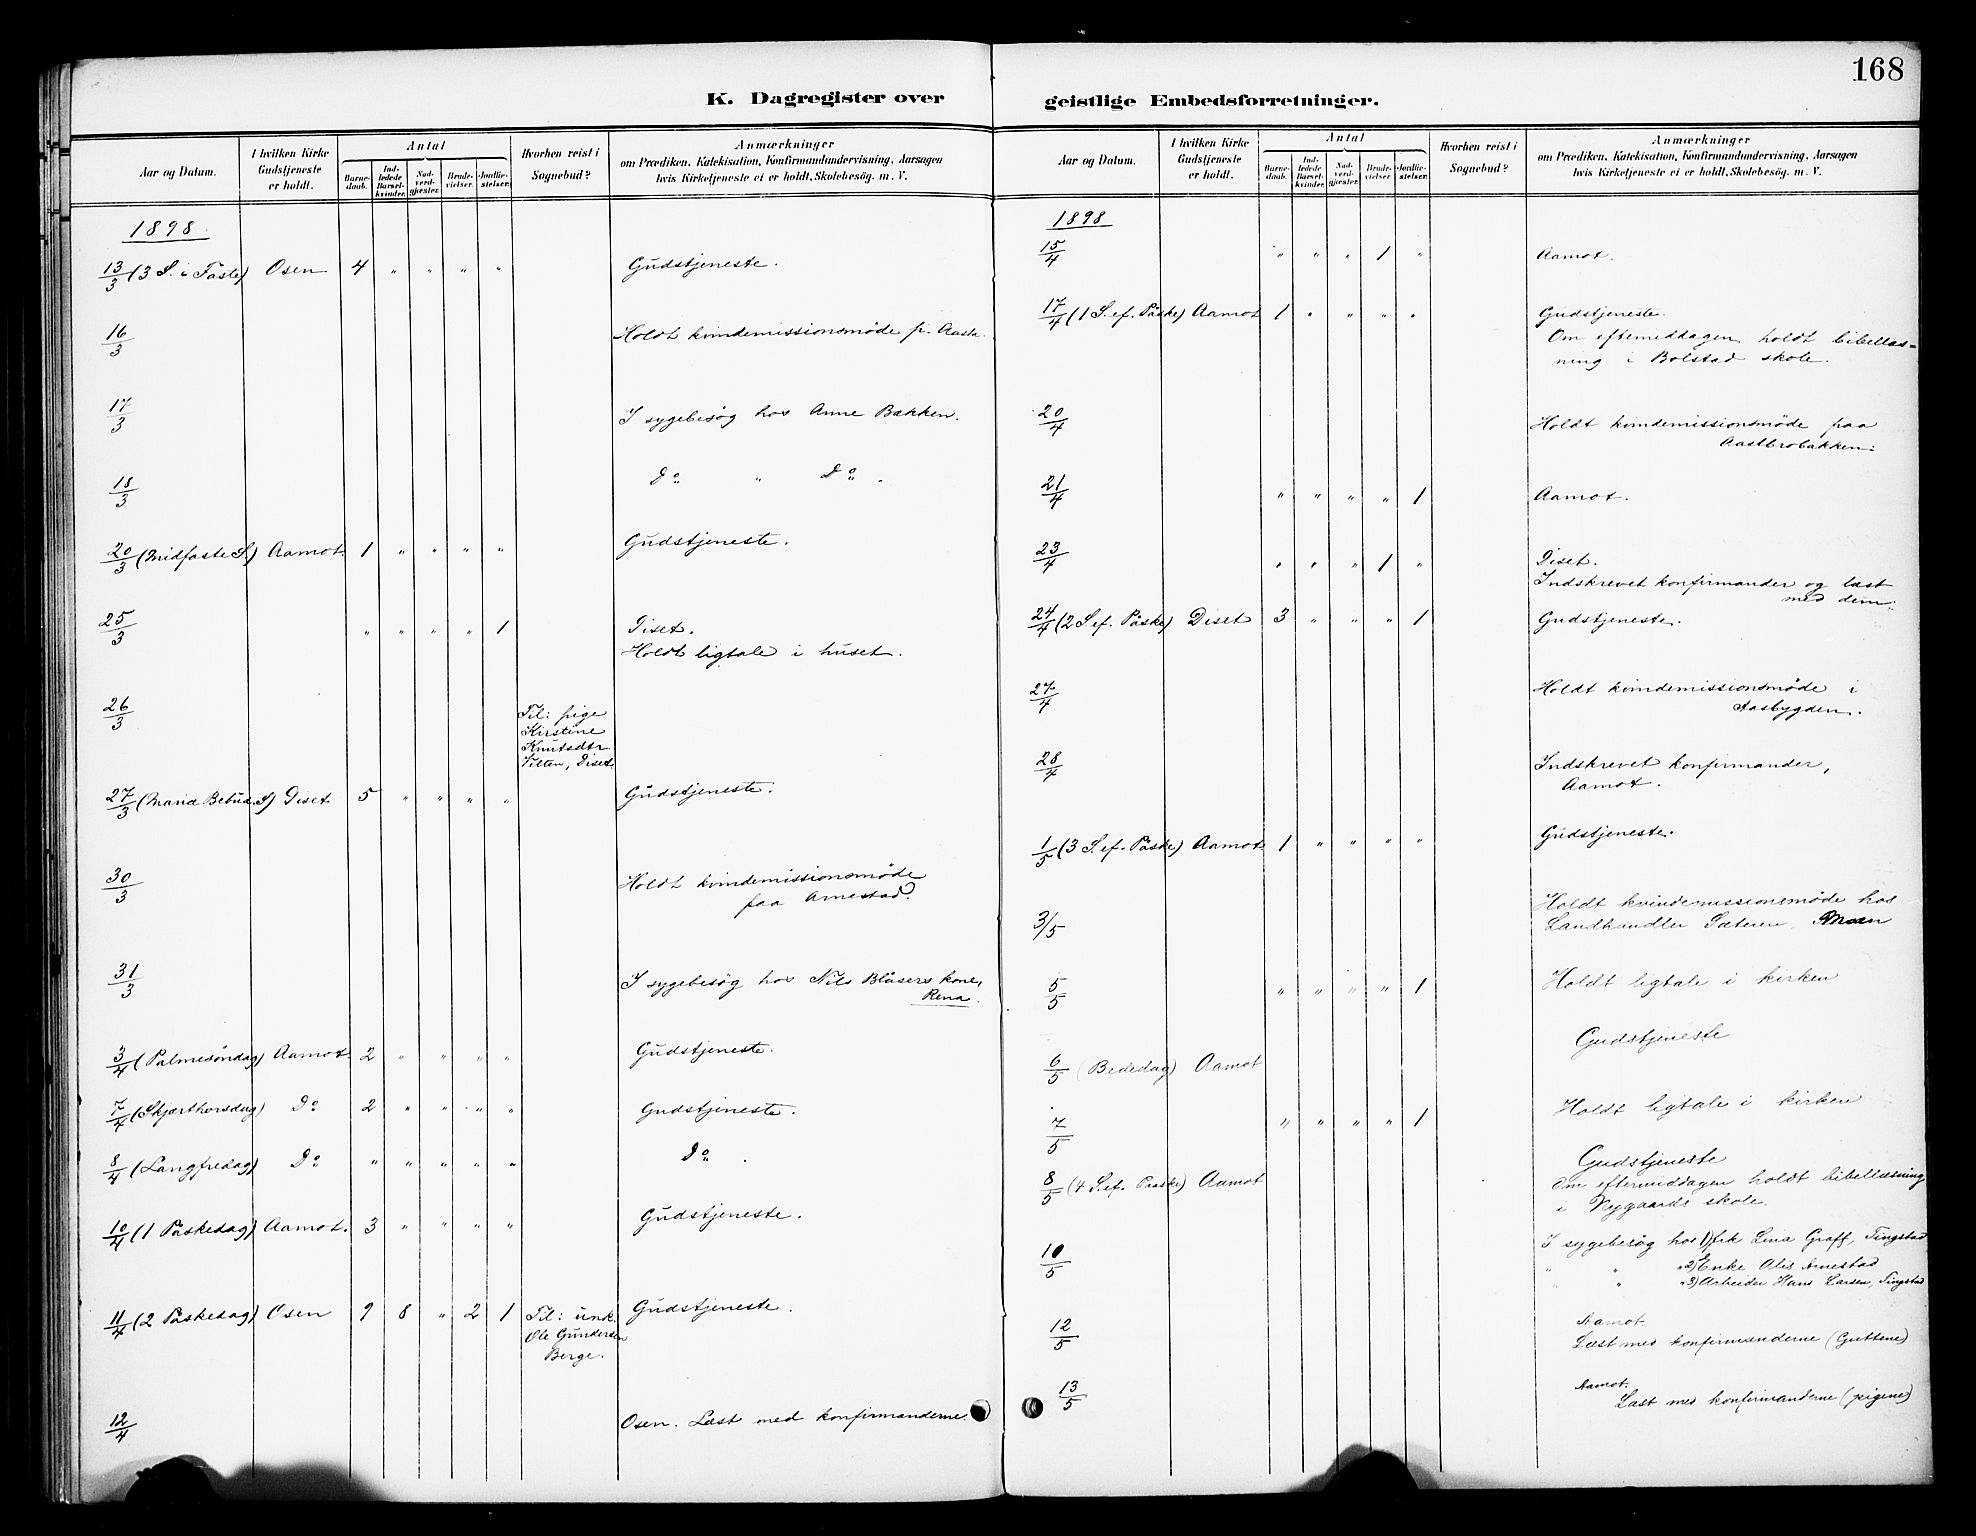 168
K. Dagregister over geistlige Embedsforretninger.
Aar og Datum.
I hvilken Kirke Gudstjeneste er holdt.
Antal
Barnedaab.
Indledede Barselkvinder.
Nadverdgjester.
Brudevielser.
Jordfæstelser.
Hvorhen reist i Sognebud?
Anmærkninger
om Prædiken, Katekisation, Konfirmandundervisning, Aarsagen
hvis Kirketjeneste ei er holdt, Skolebesøg. m. V.
1898.
13/3 (3 S. i Faste) Osen 4 " " " " Gudstjeneste.
16/3 Holdt kvindemissionsmøde p. Aasta.
17/3 I sygebesøg hos Anne Bakken.
18/3 Do " Do.
20/3 (Midfaste S) Aamot. 1 " " " " Gudstjeneste.
25/3 " " " " 1 Diset.
Holdt ligtale i huset.
26/3 Til: pige
Kirstine
Knutsdtr.
Vilten, Diset.
27/3 (Maria Bebud. S) Diset 5 " " " " Gudstjeneste.
30/3 Holdt kvindemissionsmøde
paa Arnestad.
31/3 I sygebesøg hos Nils Blåsers kone,
Rena.
3/4 (Palmesöndag) Aamot. 2 " " " " Gudstjeneste.
7/4 (Skjærthorsdag) Do 2 " " " " Gudstjeneste.
8/4 (Langfredag) Do " " " " " Do.
10/4 (1 Påskedag) Aamot. 3 " " " " Gudstjeneste.
11/4 (2 Påskedag) Osen 9 8 " 2 1 Til: unk. Gudstjeneste.
Ole Gundersen
Berge.
12/4 Osen. Læst med konfirmanderne.
Aar og Datum.
I hvilken Kirke Gudstjeneste er holdt.
Antal
Barnedaab.
Indledede Barselkvinder.
Nadverdgjester.
Brudevielser.
Jordfæstelser.
Hvorhen reist i Sognebud?
Anmærkninger
om Prædiken, Katekisation, Konfirmandundervisning, Aarsagen
hvis Kirketjeneste ei er holdt, Skolebesøg. m. V.
1898
15/4 " " " 1 " Aamot.
17/4 (1 S. ef. Påske) Aamot 1 " " " " Gudstjeneste.
Om eftemeddagen holdt bibellæs=
ning i Bolstad skole.
20/4 Holdt kvindemissionsmøde paa
Aastbrobakken.
21/4 " " " " 1 Aamot.
23/4 " " " 1 " Diset.
Indskrevet konfirmander og læst
med dem.
24/4 (2 S. ef. Påske) Diset 3 " " " 1 Gudstjeneste.
27/4 Holdt kvindemissionsmøde i
Aasbygden.
28/4 Indskrevet konfirmander,
Aamot.
1/5 (3 S. ef. Påske) Aamot. 1 " " " " Gudstjeneste.
3/5 Holdt kvindemissionsmøde hos
Landhandler Sæteren,
5/5 " " " " 1 Holdt ligtale i kirken
6/5 (Bededag) Aamot Gudstjeneste
7/5 " " " " 1 Holdt ligtale i kirken
8/5 (4 S. ef. Paaske) Aamot Gudstjeneste
Om eftermiddagen holdt bibellæsning
i Nygaards skole.
10/5 I sygebesøg hos 1) frk Lina Graff, Tingstad
" " " 2) Enke Alis Arnestad
" " " 3) Arbeider Hans Larsen, Tingstad
12/5 Aamot.
Læst med konfirmanderne (Guttene)
13/5 Aamot.
Læst med konfirmanderne (pigene)